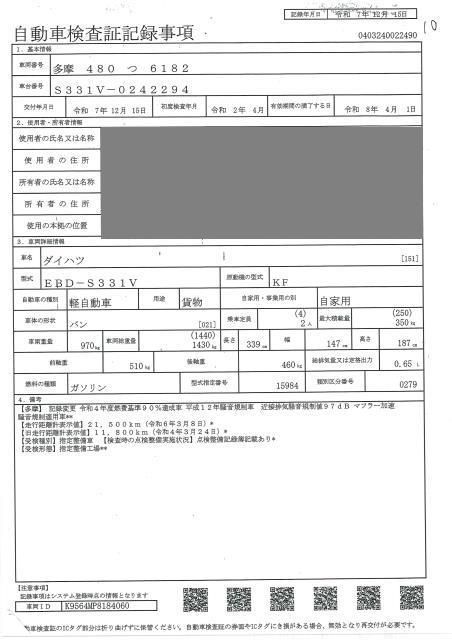 記録年月日 令和 7年12月 15日
10
自動車検査証記録事項
0403240022490
1．基本情報
車両番号 多摩 480 つ 6182
車台番号 S331V-0242294
交付年月日 令和 7年12月 15日 初度検査年月 令和 2年 4月 有効期間の満了する日 令和 8年 4月 1日
2．使用者・所有者情報
使用者の氏名又は名称
使用者の住所
所有者の氏名又は名称
所有者の住所
使用の本拠の位置
3．車両詳細情報
車名 ダイハツ [151]
型式 EBD-S331V 原動機の型式 KF
自動車の種別 軽自動車 用途 貨物 自家用・事業用の別 自家用
車体の形状 バン [021] 乗車定員 (4) 2人 最大積載量 (250) 350kg
車両重量 970kg 車両総重量 (1440) 1430kg 長さ 339cm 幅 147cm 高さ 187cm
前軸重 510kg 後軸重 460kg 総排気量又は定格出力 0.65L
燃料の種類 ガソリン 型式指定番号 15984 類別区分番号 0279
4．備考
【多摩】 記録変更 令和4年度燃費基準90％達成車 平成12年騒音規制車 近接排気騒音規制値97dB マフラー加速
騒音規制適用車**
【走行距離計表示値】21，500km（令和6年3月8日）*
【旧走行距離計表示値】11，800km（令和4年3月24日）*
【受検種別】指定整備車 【検査時の点検整備実施状況】点検整備記録簿記載あり*
【受検形態】指定整備工場**
【注意事項】
記録事項はシステム登録時点の情報となります
車両ID K9564MP8184060
自動車検査証のICタグ部分は折り曲げずに保管ください。自動車検査証の券面やICタグに き損がある場合、無効となり再交付が必要です。